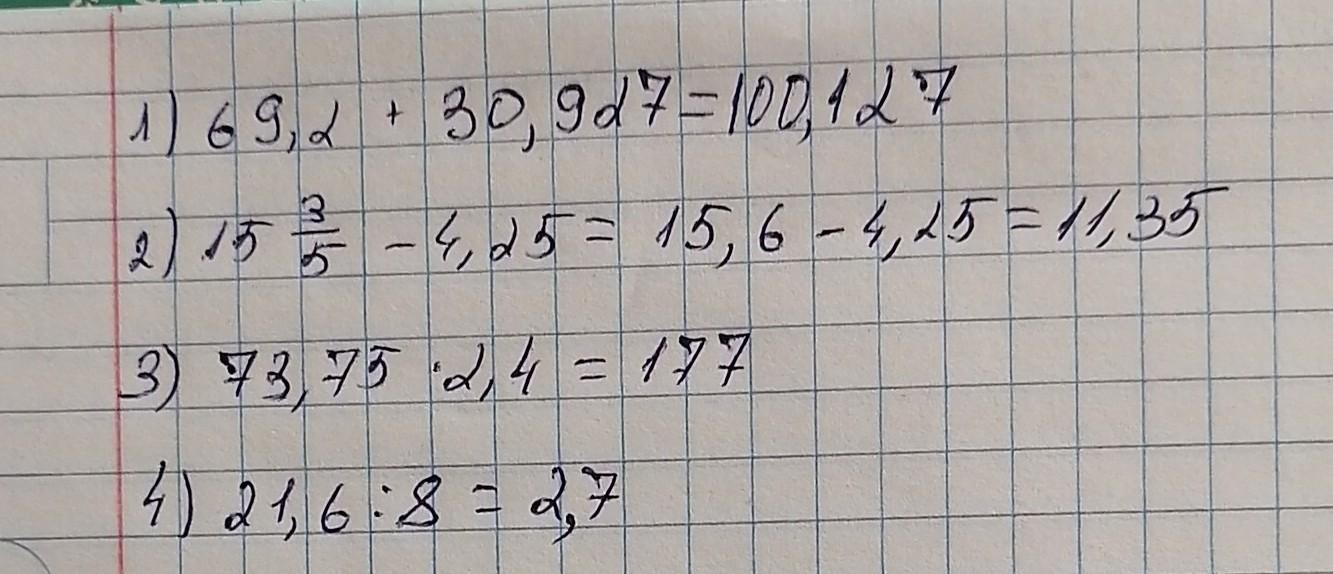 1) 69,2 + 30,927=100,127
2) 15 3/5 - 4,25 = 15,6 - 4,25 = 11,35
3) 73,75 · 2,4 = 177
4) 21,6 : 8 = 2,7